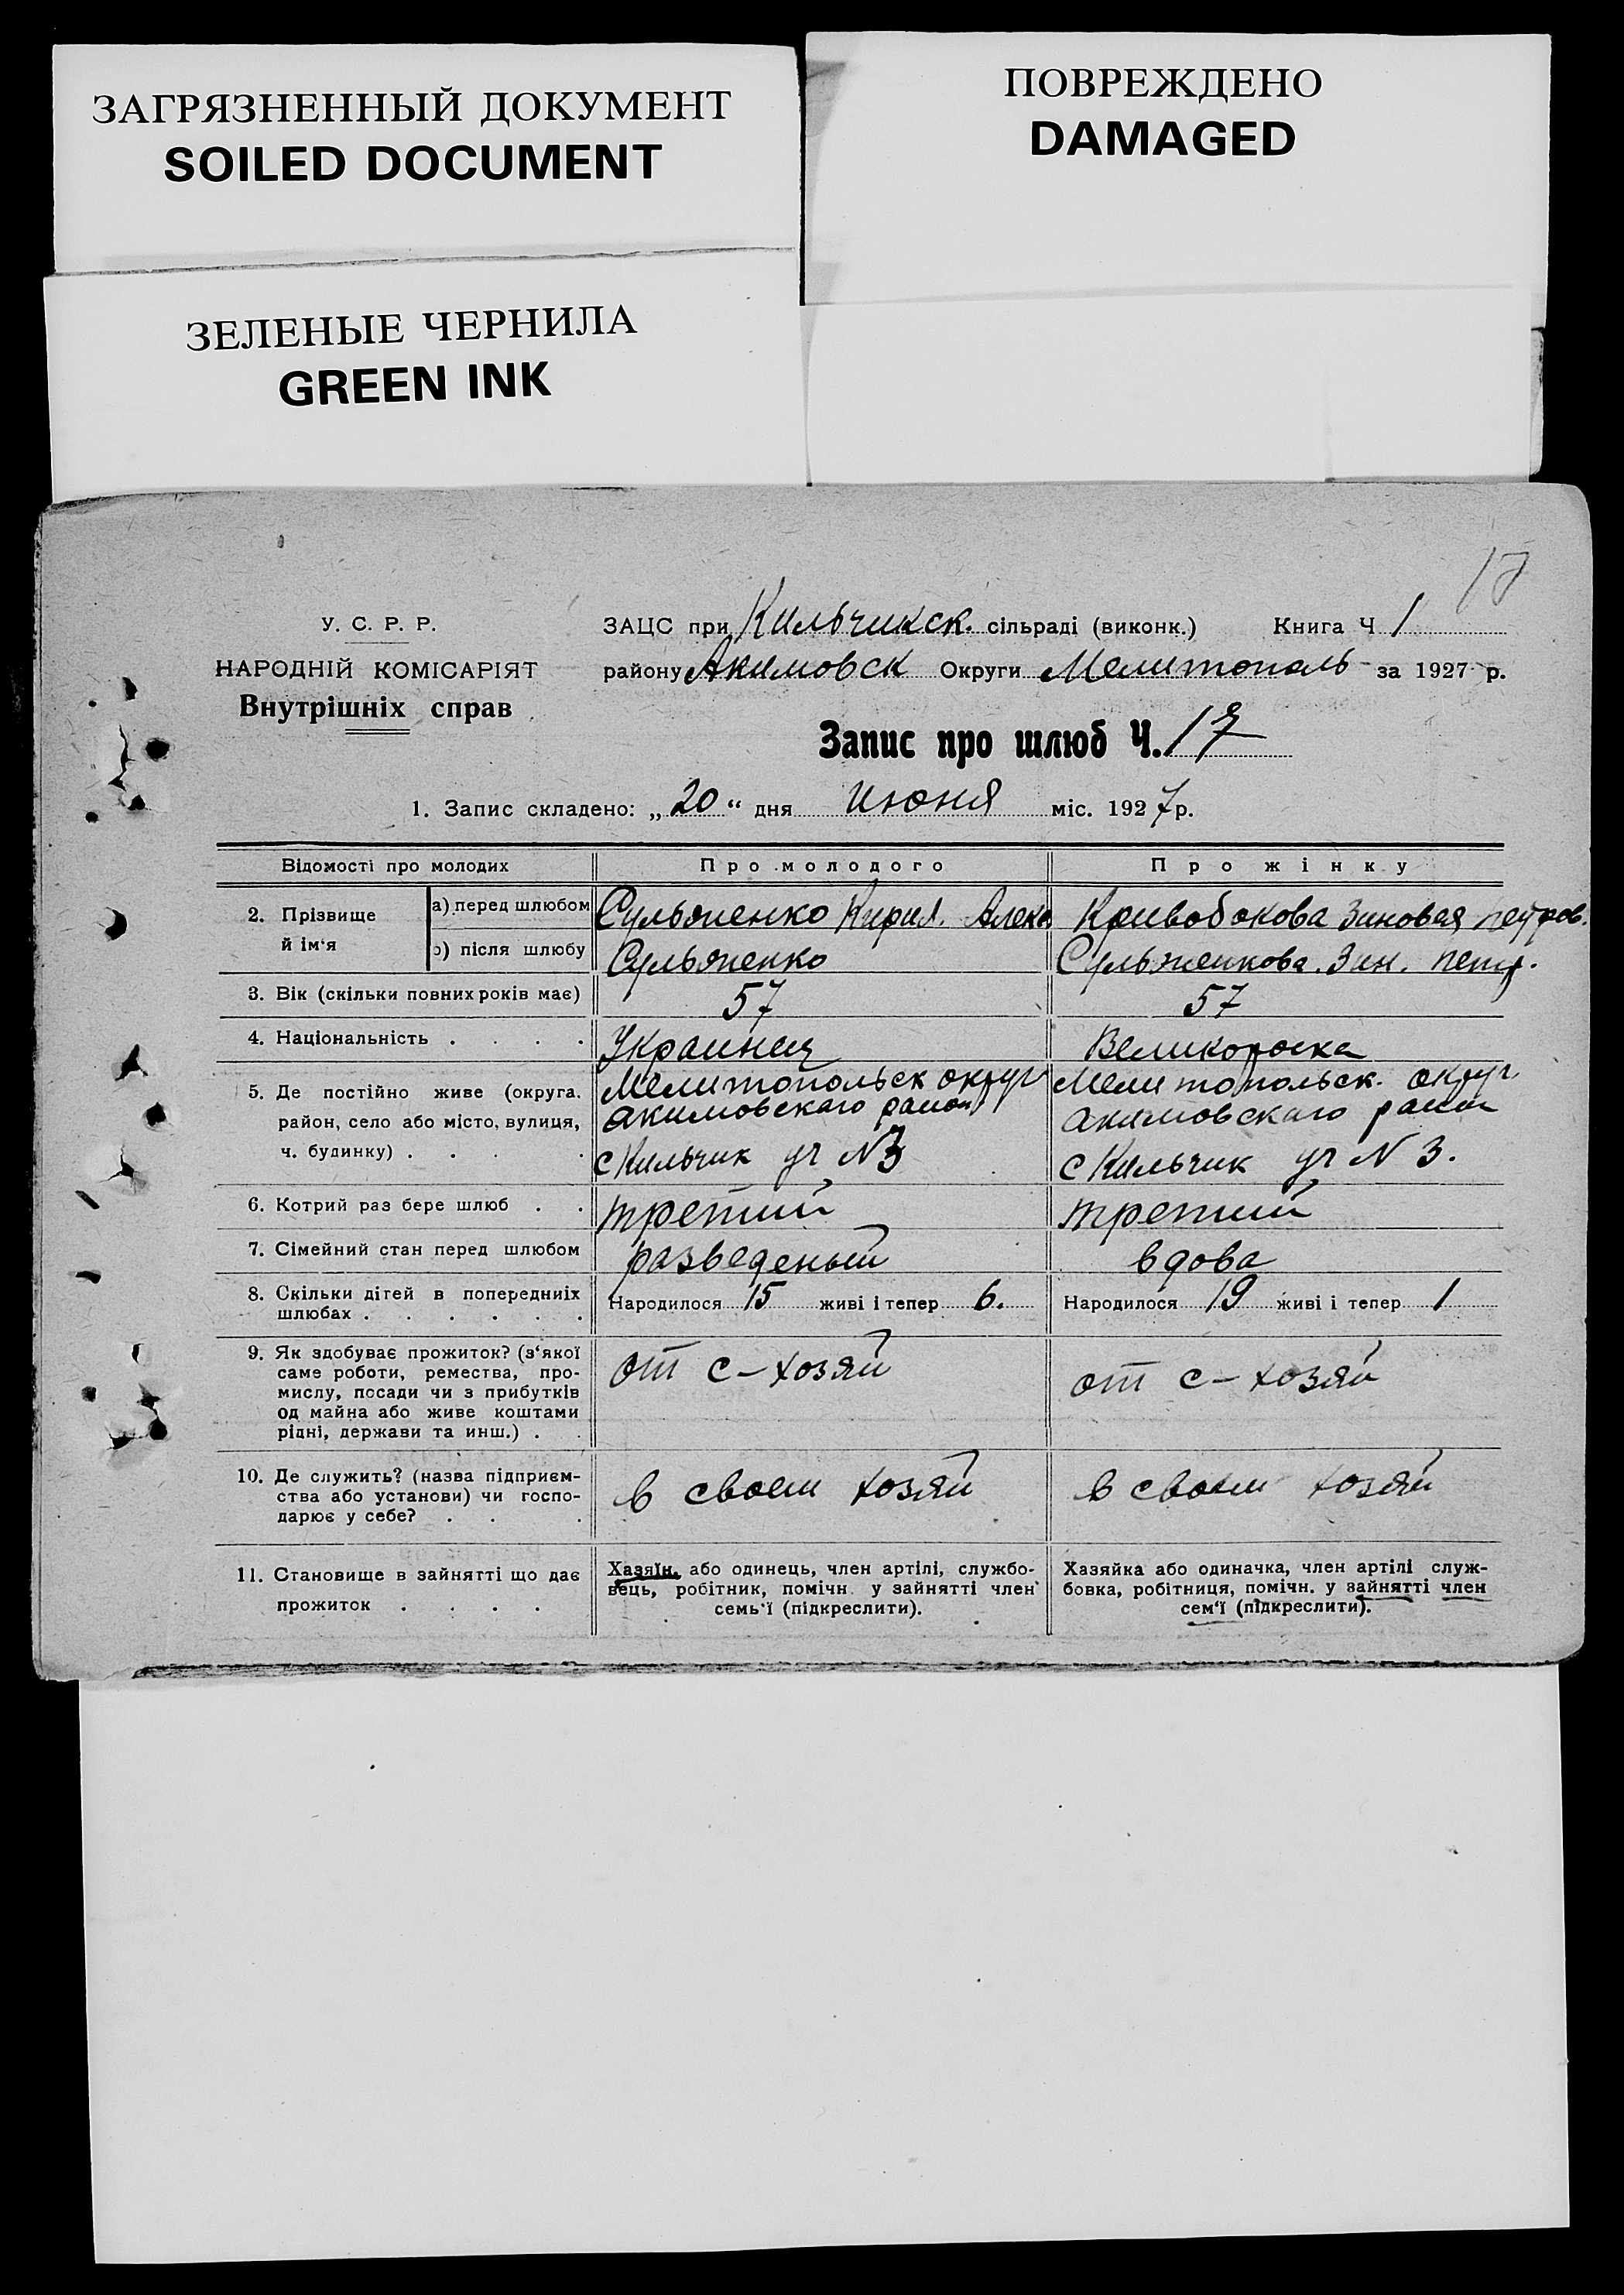 ЗАГРЯЗНЕННЫЙ ДОКУМЕНТ
SOILED DOCUMENT
ПОВРЕЖДЕНО
DAMAGED
ЗЕЛЕНЫЕ ЧЕРНИЛА
GREEN INK
17
У. С. Р. Р.
НАРОДНІЙ КОМІСАРІЯТ
Внутрішніх справ
ЗАЦС при Кильчикск. сільраді (виконк.) Книга Ч 1
району Акимовск Округи Мелитополь за 1927 р.
Запис про шлюб Ч. 17
1. Запис складено: „20“ дня июня міс. 1927 р.
Відомості про молодих Про молодого Про жінку
2. Прізвище й ім‘я а) перед шлюбом Сульженко Кирил. Алекс Кривобокова Зиновая петров.
в) після шлюбу Сульженко Сульженкова. Зин. петр.
3. Вік (скільки повних років має) 57 57
4. Національність . . . . Украинец Великороска
5. Де постійно живе (округа, Мелитопольск округ Мелитопольск. округ
район, село або місто, вулиця, акимовскаго район акимовскаго район
ч. будинку) . . . . с Кильчик уч N 3 с Кильчик уч N 3.
6. Котрий раз бере шлюб . . третий третий
7. Сімейний стан перед шлюбом разведеный вдова
8. Скільки дітей в попередниіх
шлюбах . . . . . . Народилося 15 живі і тепер 6. Народилося 19 живі і тепер 1
9. Як здобуває прожиток? (з‘якої
саме роботи, ремества, про-
мислу, посади чи з прибутків
од майна або живе коштами
рідні, держави та инш.) . .
от с-хозяй от с-хозяй
10. Де служить? (назва підприєм-
ства або установи) чи госпо-
дарює у себе? . . .
в своем хозяй в своем хозяй
11. Становище в зайнятті що дає
прожиток . . . .
Хазяїн, або одинець, член артілі, службо-
вець, робітник, помічн. у зайнятті член
семь‘ї (підкреслити).
Хазяйка або одиначка, член артілі служ-
бовка, робітниця, помічн. у зайнятті член
сем‘ї (підкреслити).